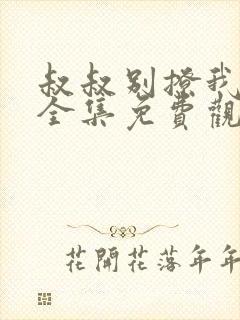 叔叔别撩我
全集免費觀
花開花落年年